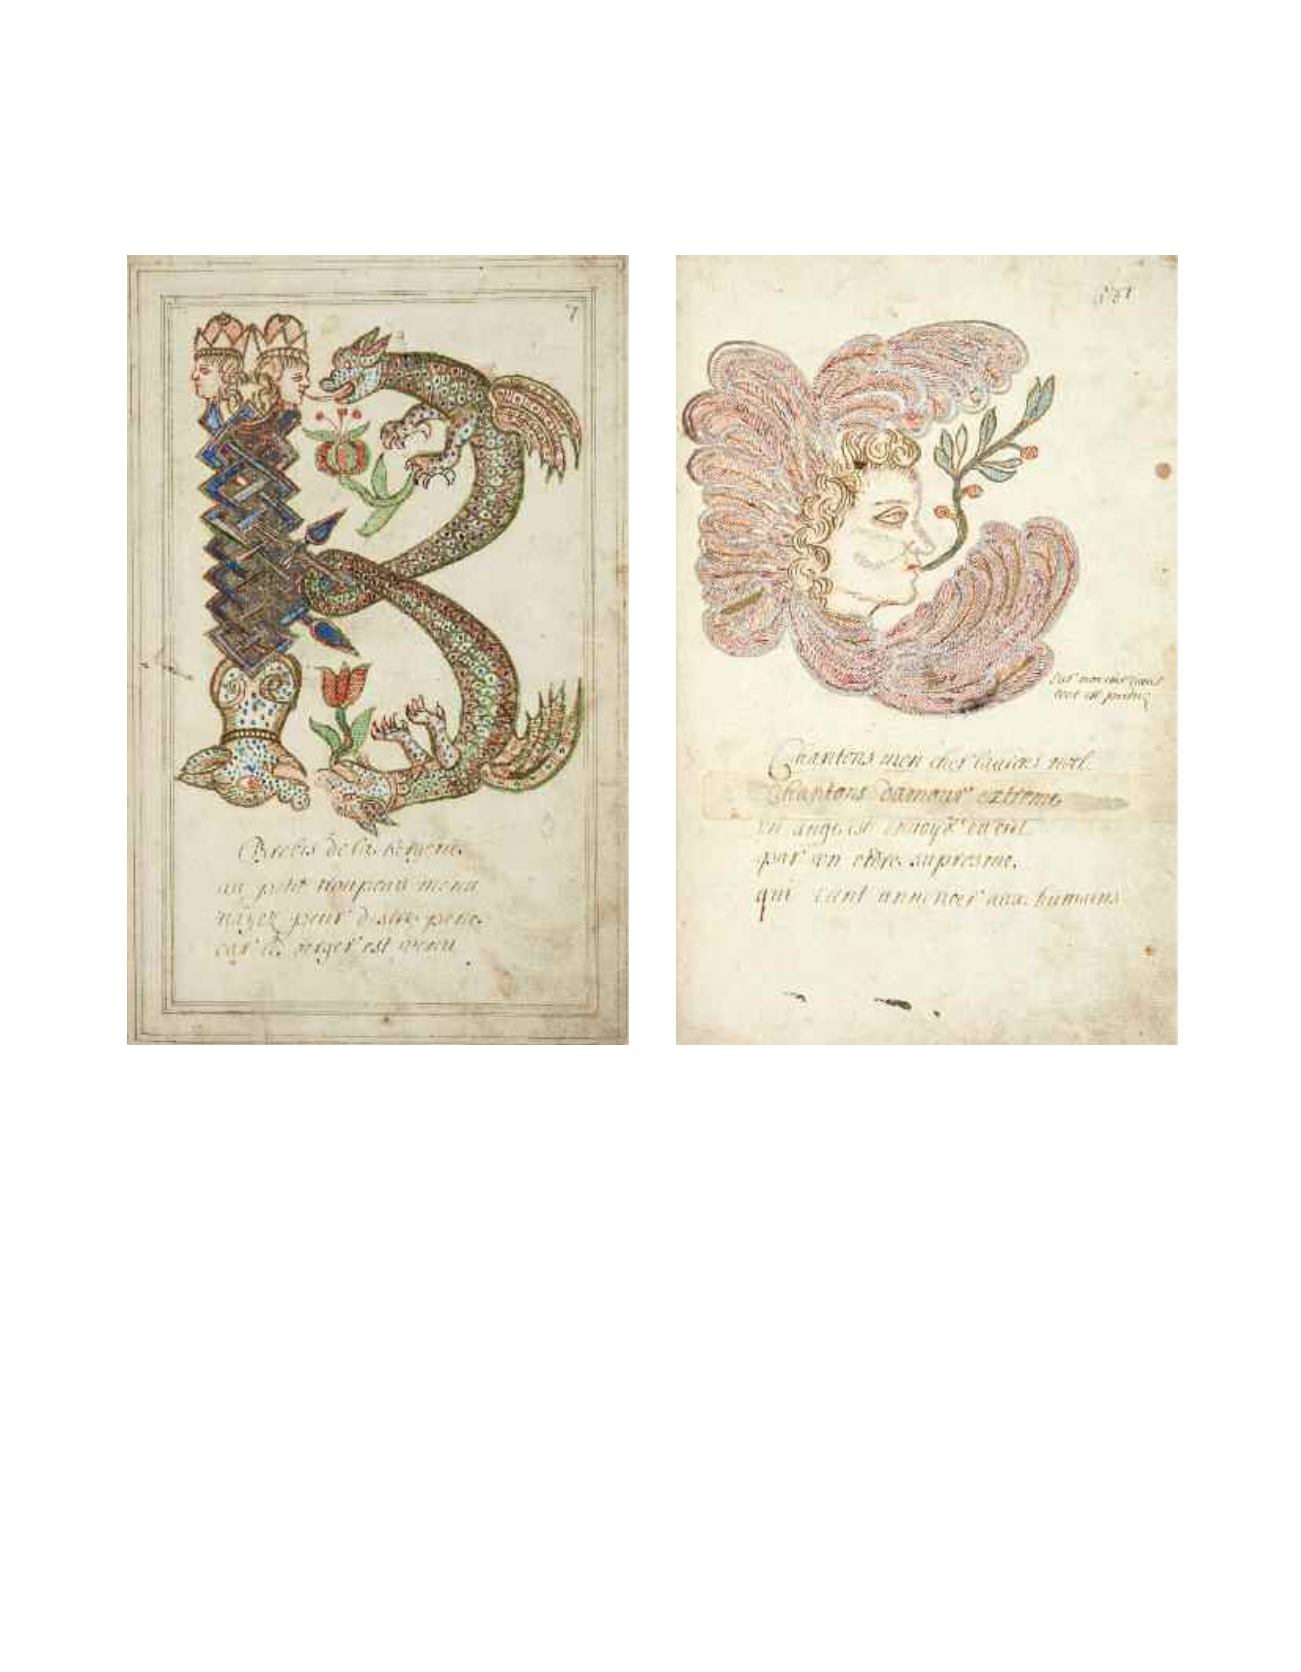 7
Brebis de la bergerie
au petit troupeau menu
nayez peur destre perie
car le berger est venu
tout est
Chantons mon cher noel
Chantons damour extreme
un ange est envoye du ciel
par un estre supresme.
qui vient annoncer aux humains